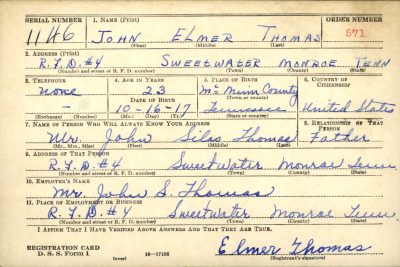 SERIAL NUMBER 1. NAME (Print) ORDER NUMBER
1146 JOHN ELMER THOMAS 571
(First) (Middle) (Last)
2. ADDRESS (Print)
R.F.D. #4 SWEETWATER MONROE TENN
(Number and street or R. F. D. number) (Town) (County) (State)
3. TELEPHONE 4. AGE IN YEARS 5. PLACE OF BIRTH 6. COUNTRY OF CITIZENSHIP
none 23 Mc Minn County
DATE OF BIRTH (Town or county)
- 10-16-17 Tennessee United States
(Exchange) (Number) (Mo.) (Day) (Yr.) (State or country)
7. NAME OF PERSON WHO WILL ALWAYS KNOW YOUR ADDRESS 8. RELATIONSHIP OF THAT PERSON
Mr. John Silas Thomas Father
(Mr., Mrs., Miss) (First) (Middle) (Last)
9. ADDRESS OF THAT PERSON
R.F.D. #4 Sweetwater Monroe Tenn.
(Number and street or R. F. D. number) (Town) (County) (State)
10. EMPLOYER'S NAME
Mr. John S. Thomas
11. PLACE OF EMPLOYMENT OR BUSINESS
R.F.D. #4 Sweetwater Monroe Tenn.
(Number and street or R. F. D. number) (Town) (County) (State)
I AFFIRM THAT I HAVE VERIFIED ABOVE ANSWERS AND THAT THEY ARE TRUE.
REGISTRATION CARD Elmer Thomas
D. S. S. Form 1 (over) 16-17105 (Registrant's signature)